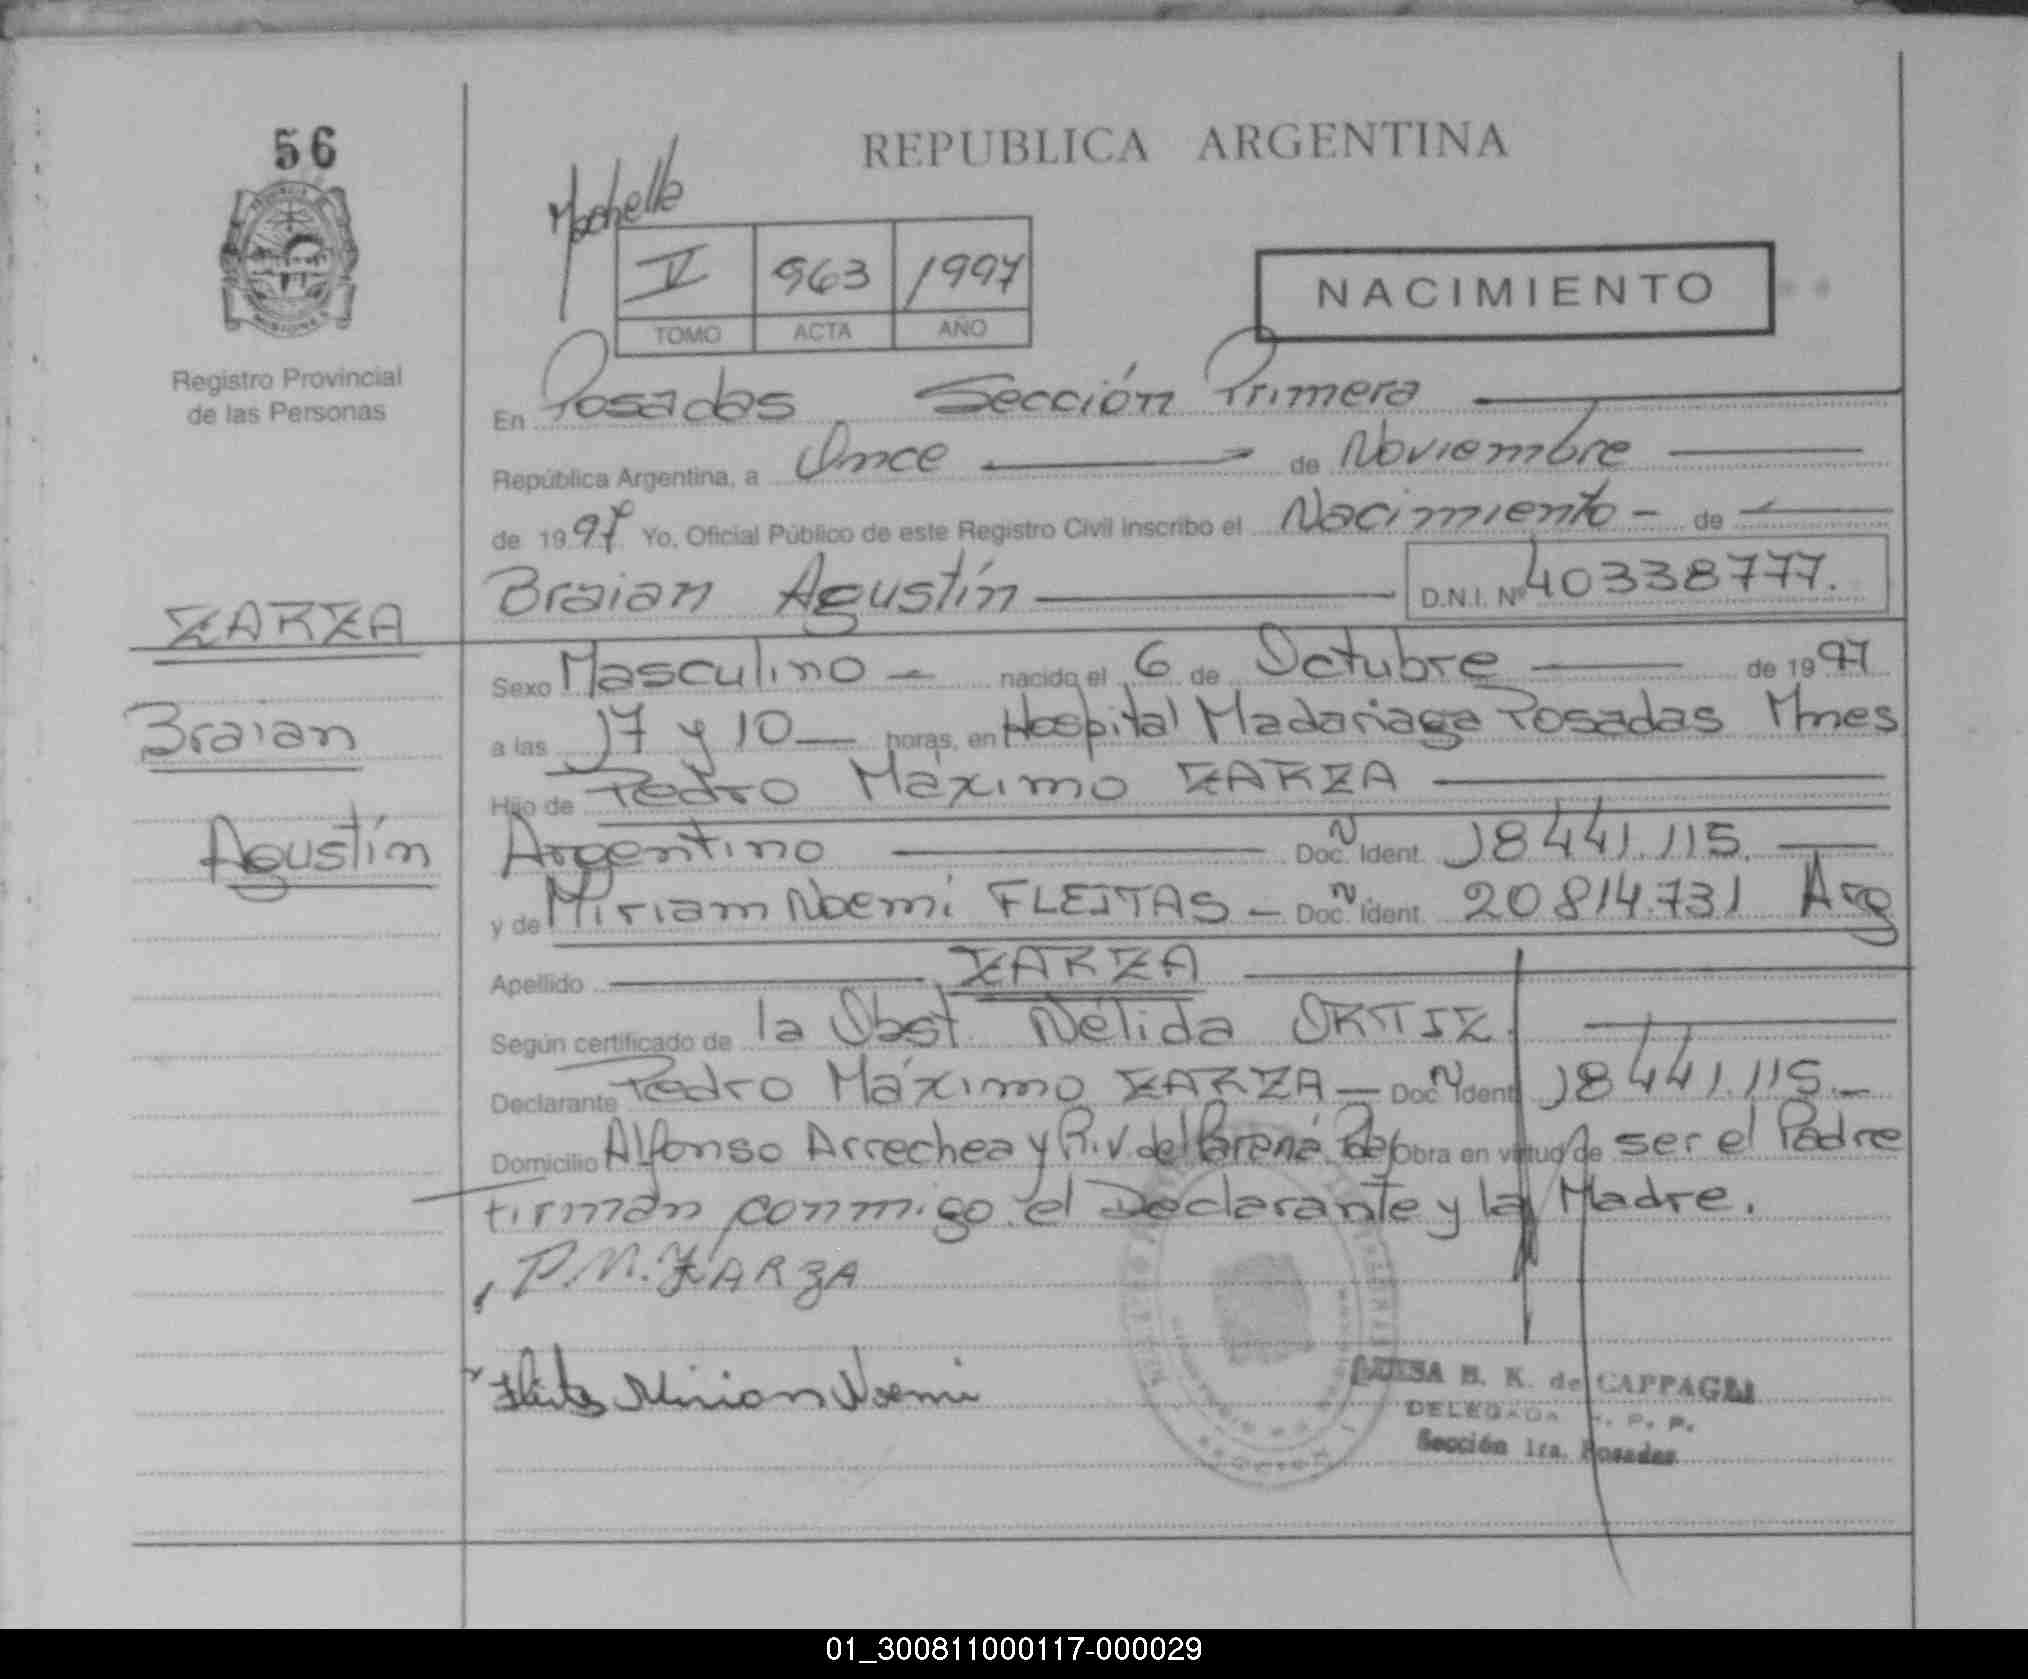 56
REPUBLICA ARGENTINA
V 963 1997
TOMO ACTA AÑO
NACIMIENTO
Registro Provincial
de las Personas
En Posadas Sección Primera
República Argentina, a Once de Noviembre
de 1997 Yo, Oficial Público de este Registro Civil inscribo el Nacimiento - de
Braian Agustín D.N.I. Nº 40338777.
ZARZA
Braian
Agustín
Sexo Masculino - nacido el 6 de Octubre de 1997
a las 17 y 10 horas, en Hospital Madariaga Posadas Mnes
Hijo de Pedro Máximo ZARZA
Argentino Doc. Ident. 18441.115.
y de Miriam Noemí FLEITAS - Doc. Ident. 20814.731 Arg
Apellido ZARZA
Según certificado de la Obst. Nélida ORTIZ.
Declarante Pedro Máximo ZARZA - Doc. Ident. 18441.115.-
Domicilio Alfonso Arrechea y R.V. del Paraná Obra en virtud de ser el Padre
firman conmigo el Declarante y la Madre.
P.M. ZARZA
Mirian Noemi
LUISA B. K. de CAPPAGLI
DELEGADA R. P. P.
Sección 1ra. Posadas
01_300811000117-000029